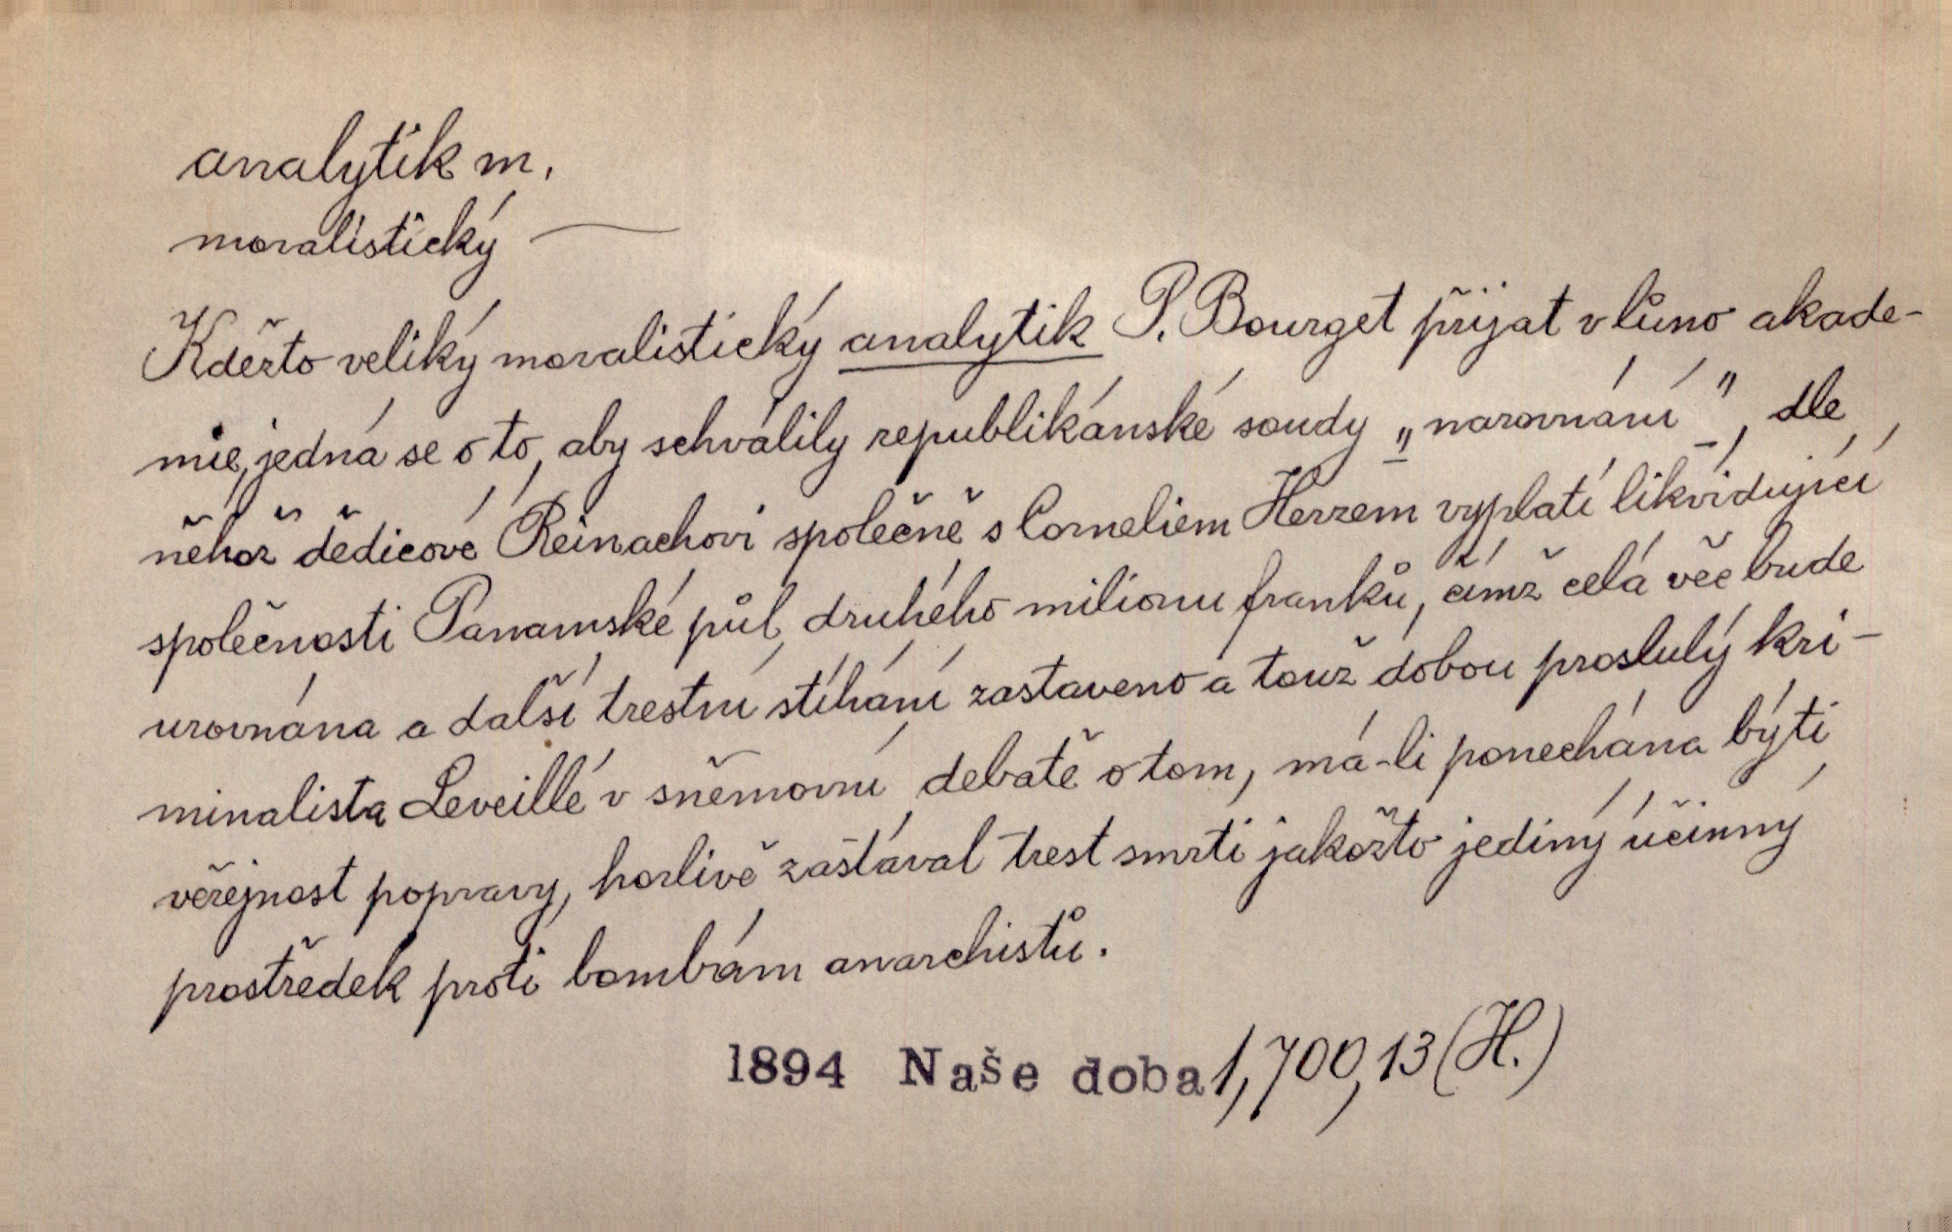 analytik m.
moralistický —
Kdežto veliký moralistický analytik P. Bourget přijat v lůno akade-
mie, jedná se o to, aby schválily republikánské soudy „narovnání", dle
něhož dědicové Reinachovi společně s Corneliem Herzem vyplatí likvidující
společnosti Panamské půl druhého milionu franků, čímž celá věc bude
urovnána a další trestní stíhání zastaveno a touž dobou proslulý kri-
minalista Leveillé v sněmovní debatě o tom, má-li ponechána býti
veřejnost popravy, horlivě zastával trest smrti jakožto jediný účinný
prostředek proti bombám anarchistů.
1894 Naše doba 1,700,13 (H.)